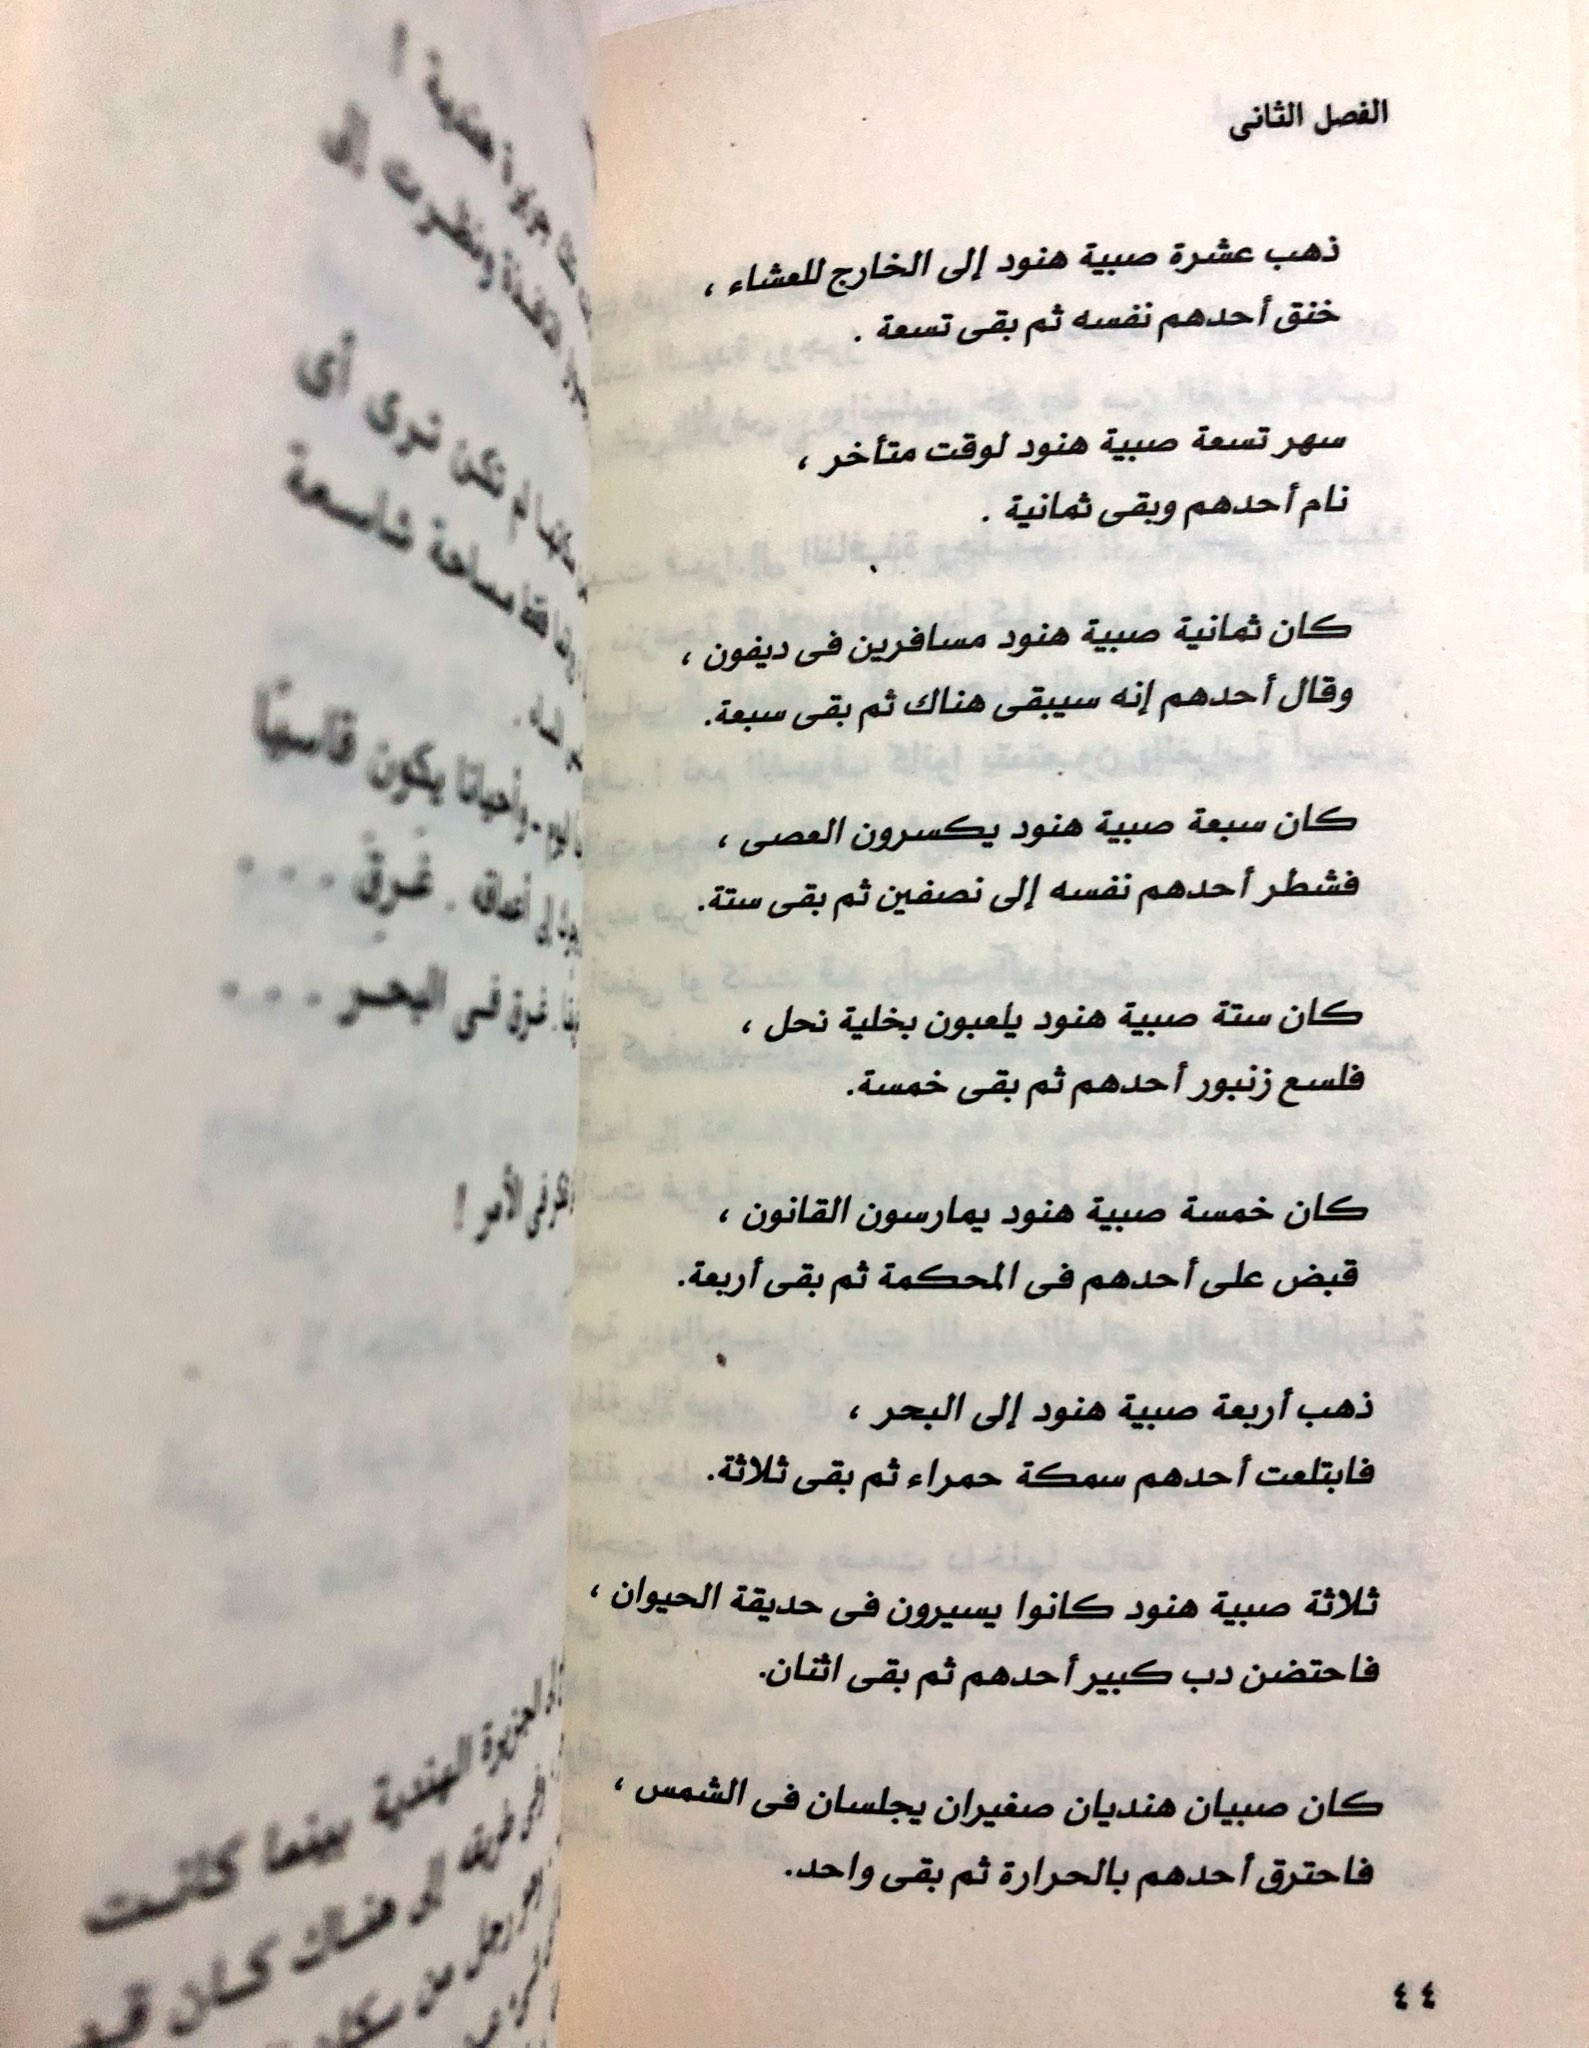 الفصل الثانى
ذهب عشرة صبية هنود إلى الخارج للعشاء ،
خنق أحدهم نفسه ثم بقى تسعة .
سهر تسعة صبية هنود لوقت متأخر ،
نام أحدهم وبقى ثمانية .
كان ثمانية صبية هنود مسافرين فى ديفون ،
وقال أحدهم إنه سيبقى هناك ثم بقى سبعة.
كان سبعة صبية هنود يكسرون العصى ،
فشطر أحدهم نفسه إلى نصفين ثم بقى ستة.
كان ستة صبية هنود يلعبون بخلية نحل ،
فلسع زنبور أحدهم ثم بقى خمسة.
كان خمسة صبية هنود يمارسون القانون ،
قبض على أحدهم فى المحكمة ثم بقى أربعة.
ذهب أربعة صبية هنود إلى البحر ،
فابتلعت أحدهم سمكة حمراء ثم بقى ثلاثة.
ثلاثة صبية هنود كانوا يسيرون فى حديقة الحيوان ،
فاحتضن دب كبير أحدهم ثم بقى اثنان.
كان صبيان هنديان صغيران يجلسان فى الشمس ،
فاحترق أحدهم بالحرارة ثم بقى واحد.
٤٤
هندية !
ونظرت إلى
تكن ترى أى
مساحة شاسعة
وأحيانا يكون قاسيًا
إلى أعماقه . غرق . . .
غرق فى البحر . . .
فى الأمر !
الجزيرة الهندية بينما كانت
طريقه إلى هناك كان قد
رجل من